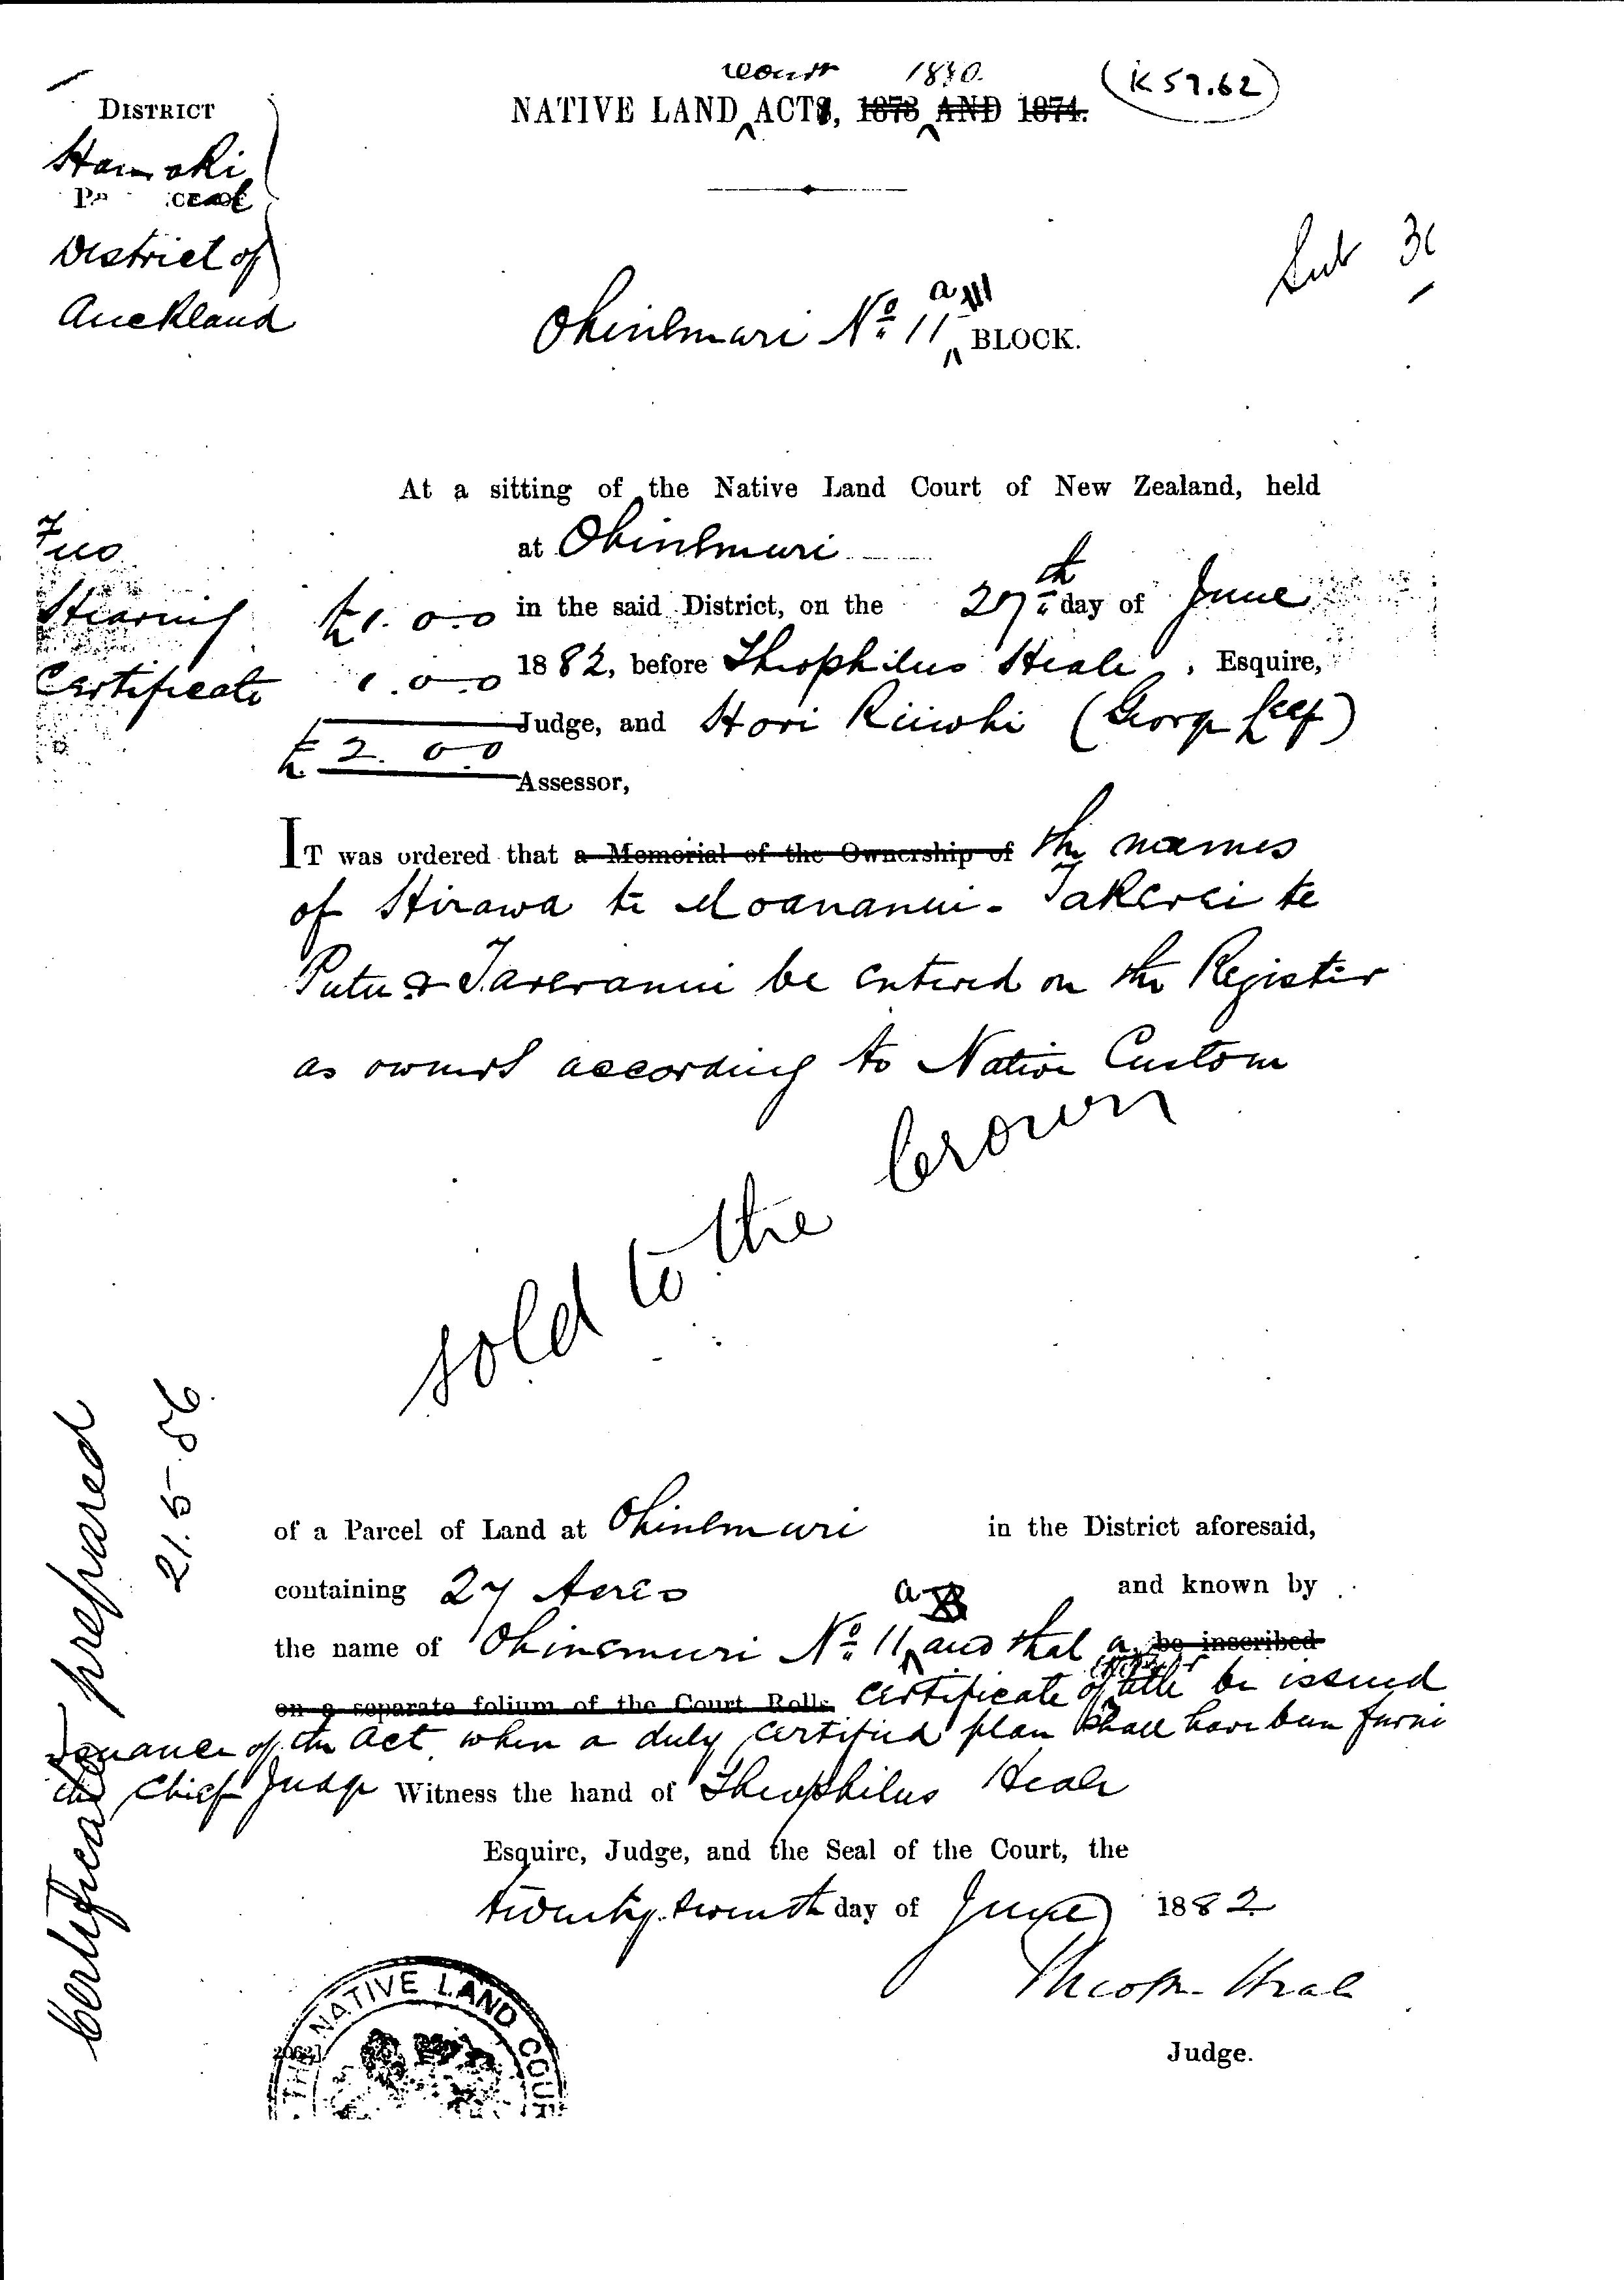 Court 1880.
NATIVE LAND ACTS, 1873 AND 1874.
(K 57.62)
DISTRICT
Hauraki
District of
Auckland
Sub 3
Ohinemuri No 11 a BLOCK.
At a sitting of the Native Land Court of New Zealand, held
at Ohinemuri
in the said District, on the 27th day of June
1882, before Theophilus Heale, Esquire,
Judge, and Hori Riiwhi (George Leef)
Assessor,
Fees
Hearing £1.0.0
Certificate 1.0.0
£2.0.0
IT was ordered that a Memorial of the Ownership of the names
of Hirawa te Moananui - Takerei te
Putu & Tareranui be entered on the Register
as owners according to Native Custom
sold to the Crown
of a Parcel of Land at Ohinemuri in the District aforesaid,
containing 27 Acres and known by
the name of Ohinemuri No 11 a and that a be inscribed
on a separate folium of the Court Rolls certificate of title be issued
of the Act when a duly certified plan shall have been furni
the Chief Judge Witness the hand of Theophilus Heale
Esquire, Judge, and the Seal of the Court, the
twenty seventh day of June 1882
Theop. Heale
Judge.
Certificate prepared
21.5.86
THE NATIVE LAND COUR